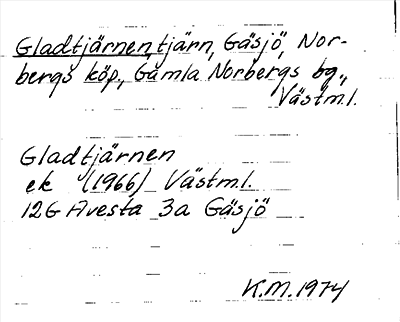 Gladtjärnen, tjärn, Gäsjö, Nor-
bergs köp., Gamla Norbergs bg.,
Västml.
Gladtjärnen
ek (1966) Västml.
12G Avesta 3a Gäsjö
K.M. 1974